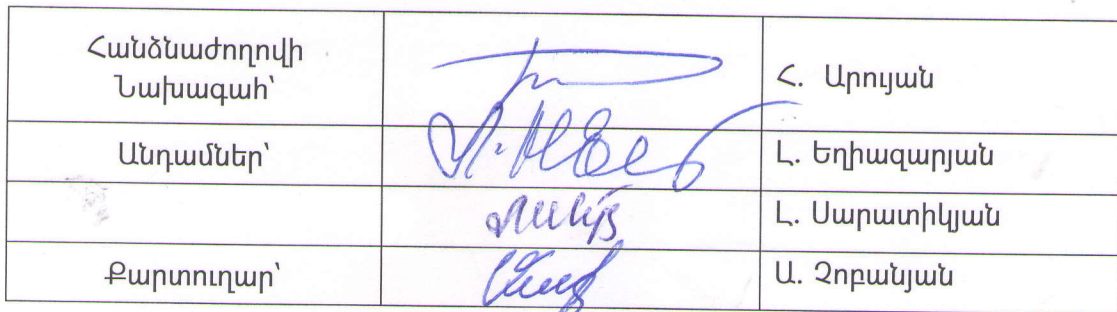 Հանձնաժողովի
Նախագահ՝
Հ. Արույան
Անդամներ՝
Լ. Եղիազարյան
Լ. Սարատիկյան
Քարտուղար՝
Ա. Չոբանյան